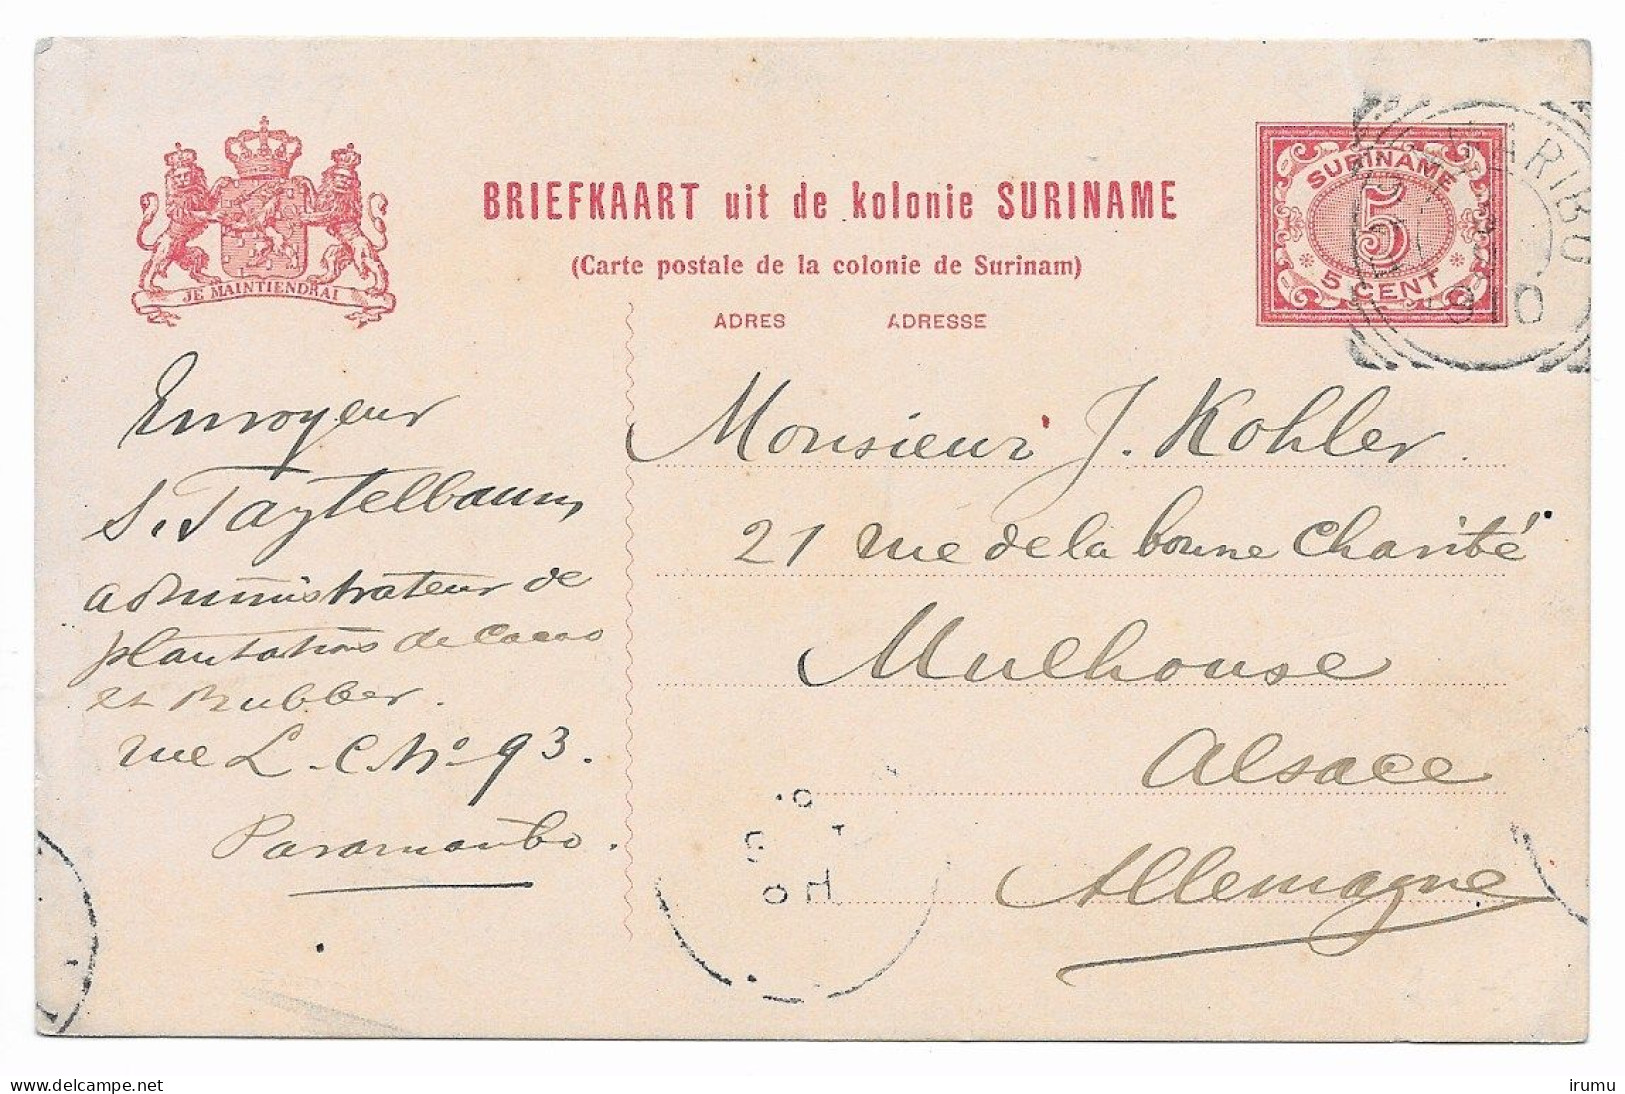 BRIEFKAART uit de kolonie SURINAME
(Carte postale de la colonie de Surinam)
ADRES ADRESSE
JE MAINTIENDRAI
SURINAME
5
5 CENT
ARIBO
910
Envoyeur
S. Taytelbaum
administrateur de
plantations de Cacao
et Rubber.
rue L. C. No. 93.
Paramaribo.
Monsieur J. Kohler
21 rue de la bonne Charité
Mulhouse
Alsace
Allemagne
delcampe.net
irumu